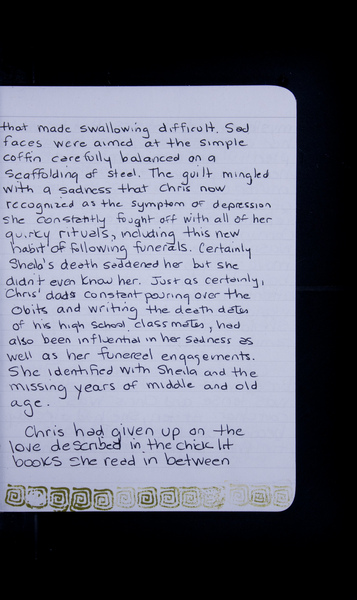 that made swallowing difficult. Sad
faces were aimed at the simple
coffin carefully balanced on a
scaffolding of steel. The guilt mingled
with a sadness that Chris now
recognized as the symptom of depression
she constantly fought off with all of her
quirky rituals, including this new
habit of following funerals. Certainly
Sheila's death saddened her but she
didn't even know her. Just as certainly,
Chris' dads constant pouring over the
obits and writing the death dates
of his high school class mates, had
also been influential in her sadness as
well as her funereal engagements.
She identified with Sheila and the
missing years of middle and old
age.
Chris had given up on the
love described in the chick lit
books she read in between